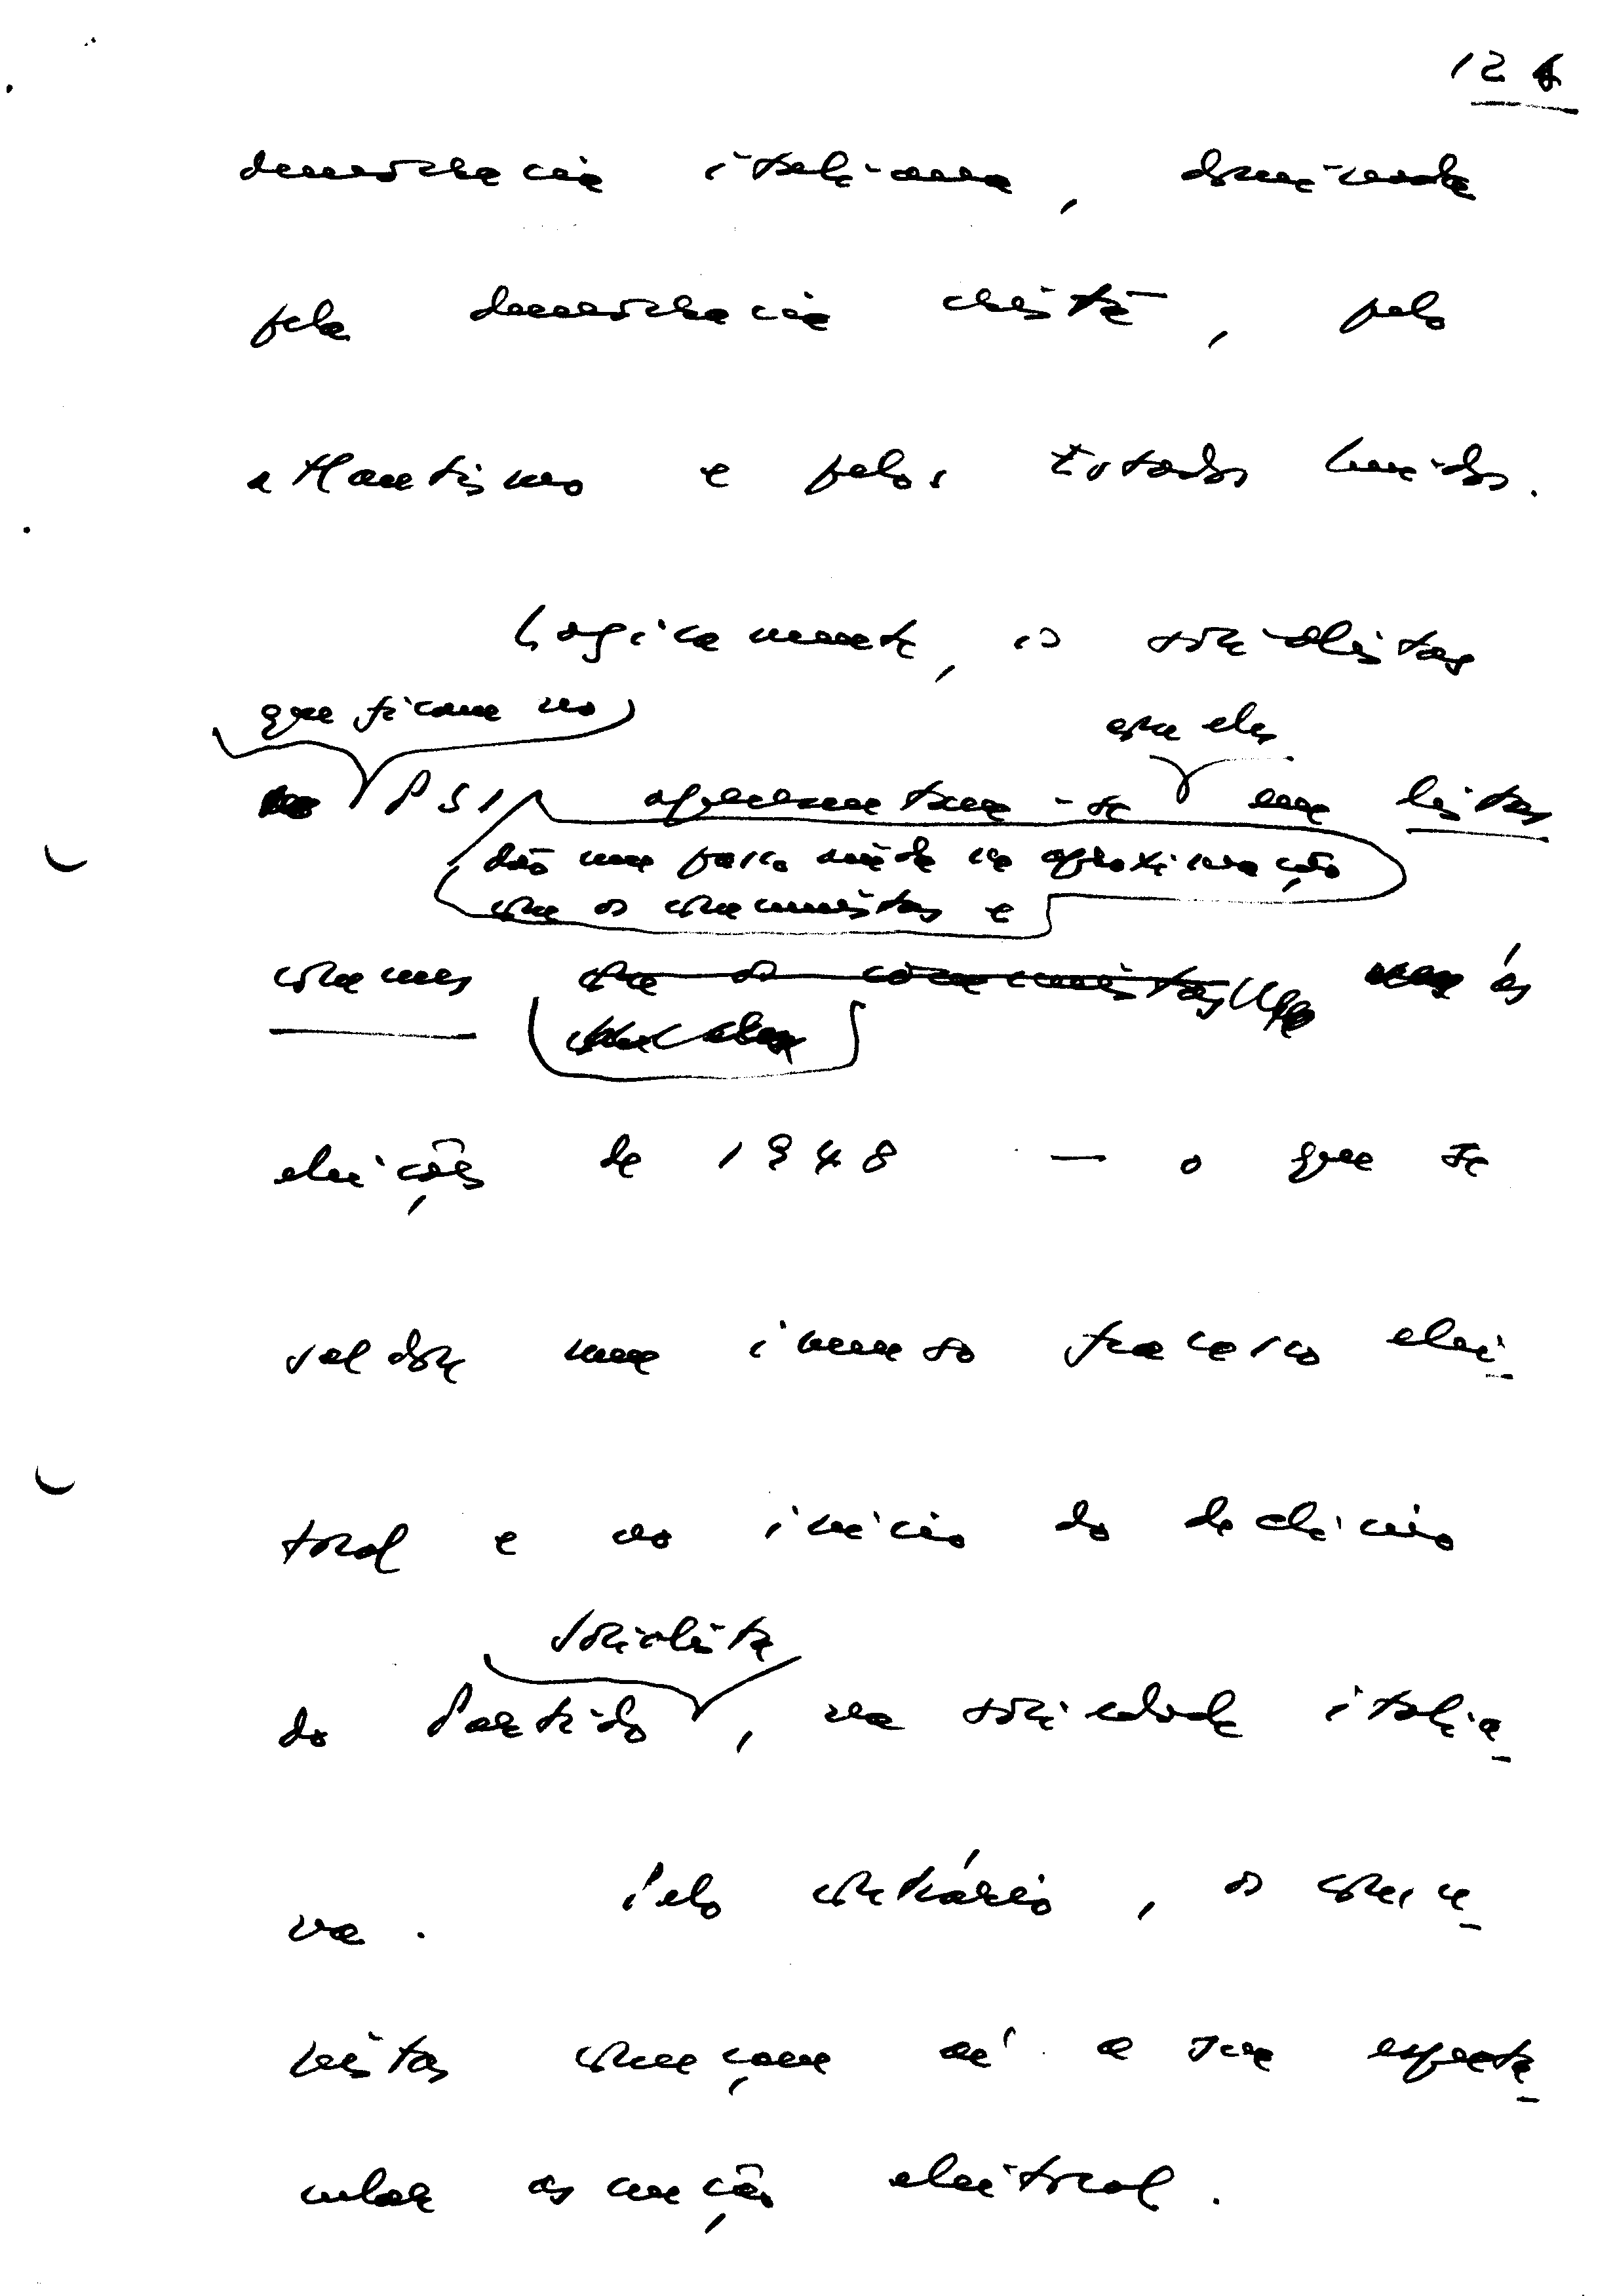 124
democracia italiana, dominada
pela democracia cristã, pelo
atlantismo e pelos Estados Unidos.
Logicamente, os socialistas
que ficam no
com eles
PSI apresentam-se em listas
dão um passo mais na aproximação
com os comunistas e
comuns com os comunistas às
eleições de 1948 — o que se
saldou num imenso fracasso elei-
toral e no início do declínio
socialista
do Partido, na sociedade italia-
na. Pelo contrário, os comu-
nistas começam aí a sua especta-
cular ascensão eleitoral.